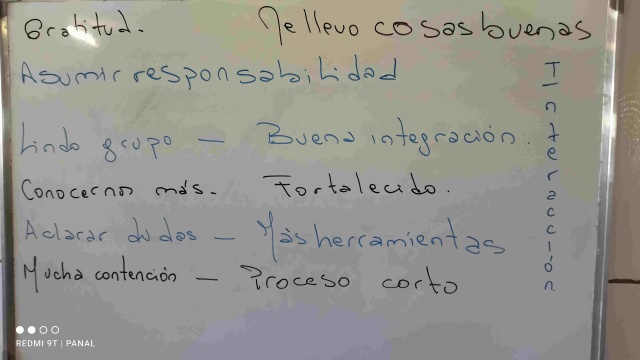 Gratitud. Me llevo cosas buenas
Asumir responsabilidad
Lindo grupo — Buena integración.
Conocernos más. Fortalecido.
Aclarar dudas — Más herramientas
Mucha contención — Proceso corto
Interacción
REDMI 9T | PANAL